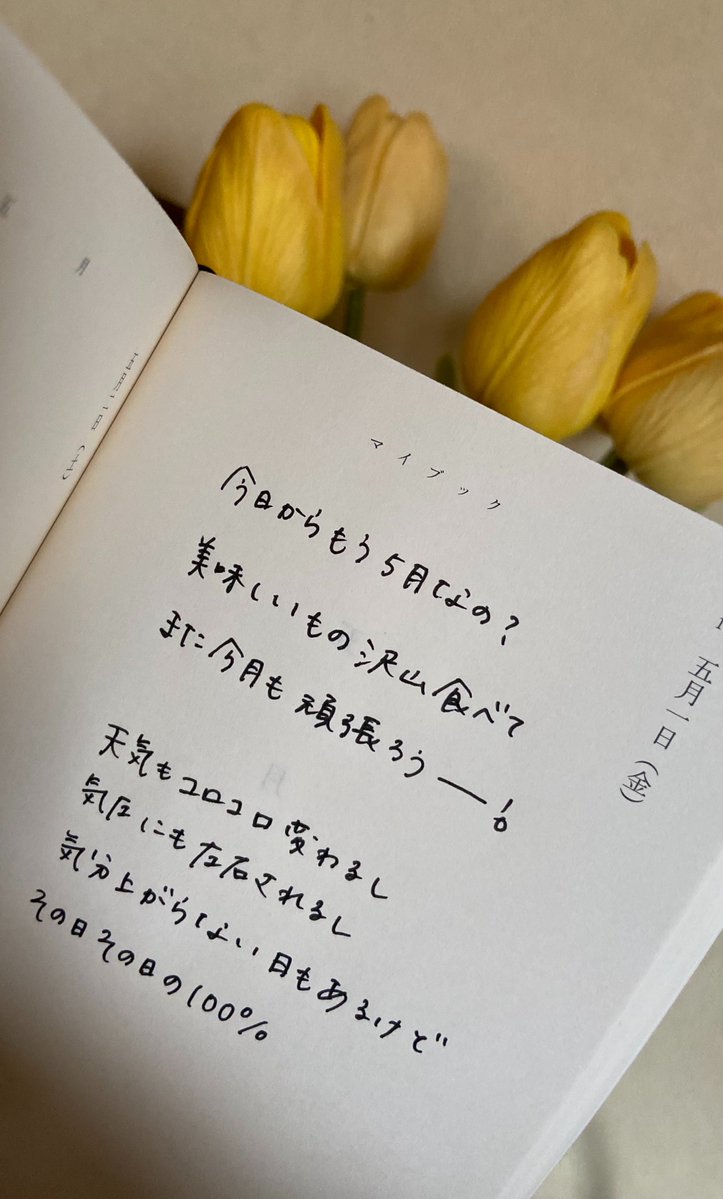 マイブック
五月一日(金)
今日からもう5月なの?
美味しいもの沢山食べて
また今月も頑張ろうー!
天気もコロコロ変わるし
気圧にも左右されるし
気分上がらない日もあるけど
その日その日の100%